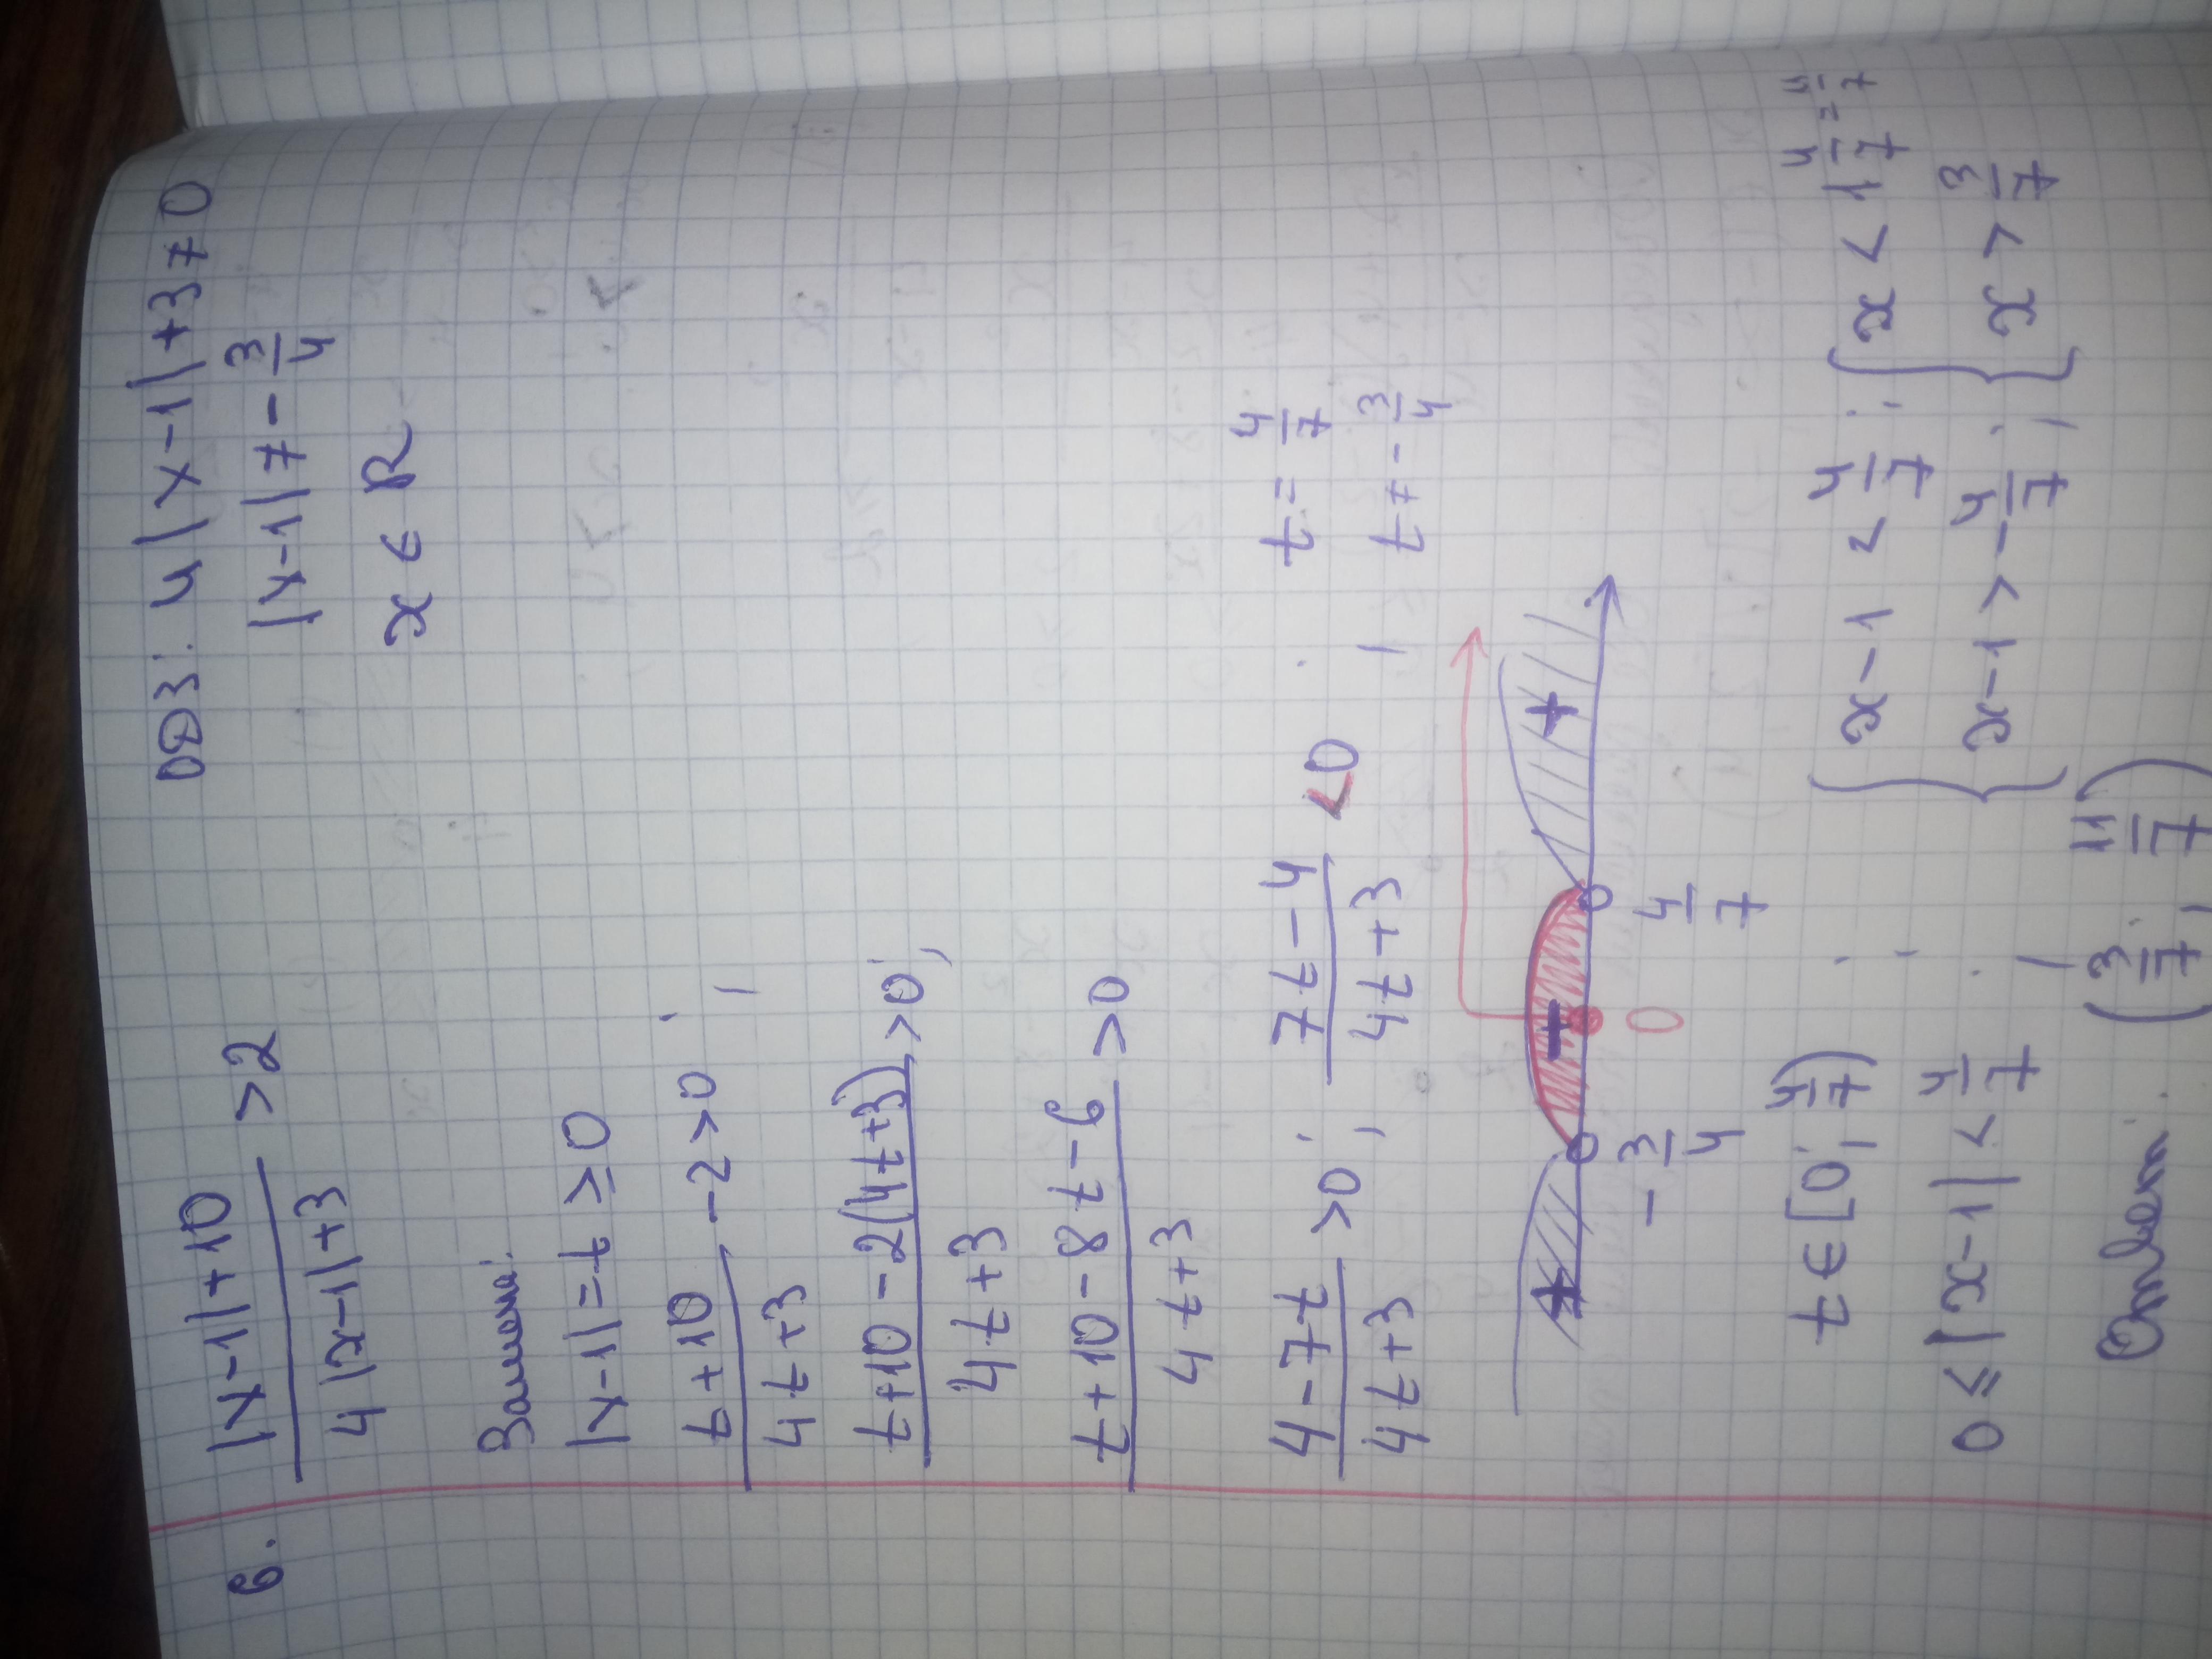 6. (|x-1|+10)/(4|x-1|+3) >2 ОДЗ: 4|x-1|+3≠0
|x-1|≠-3/4
x ∈ R
Заміна:
|x-1|=t ≥0
(t+10)/(4t+3) -2>0 ;
(t+10-2(4t+3))/(4t+3) >0;
(t+10-8t-6)/(4t+3) >0
(4-7t)/(4t+3) >0 ; (7t-4)/(4t+3) <0 ; t=4/7
t≠-3/4
+ - +
-3/4 0 4/7
t∈[0; 4/7) ; { x-1<4/7 ; { x<1 4/7=11/7
0≤|x-1|<4/7 ; { x-1>-4/7 ; { x>3/7
(3/7; 11/7)